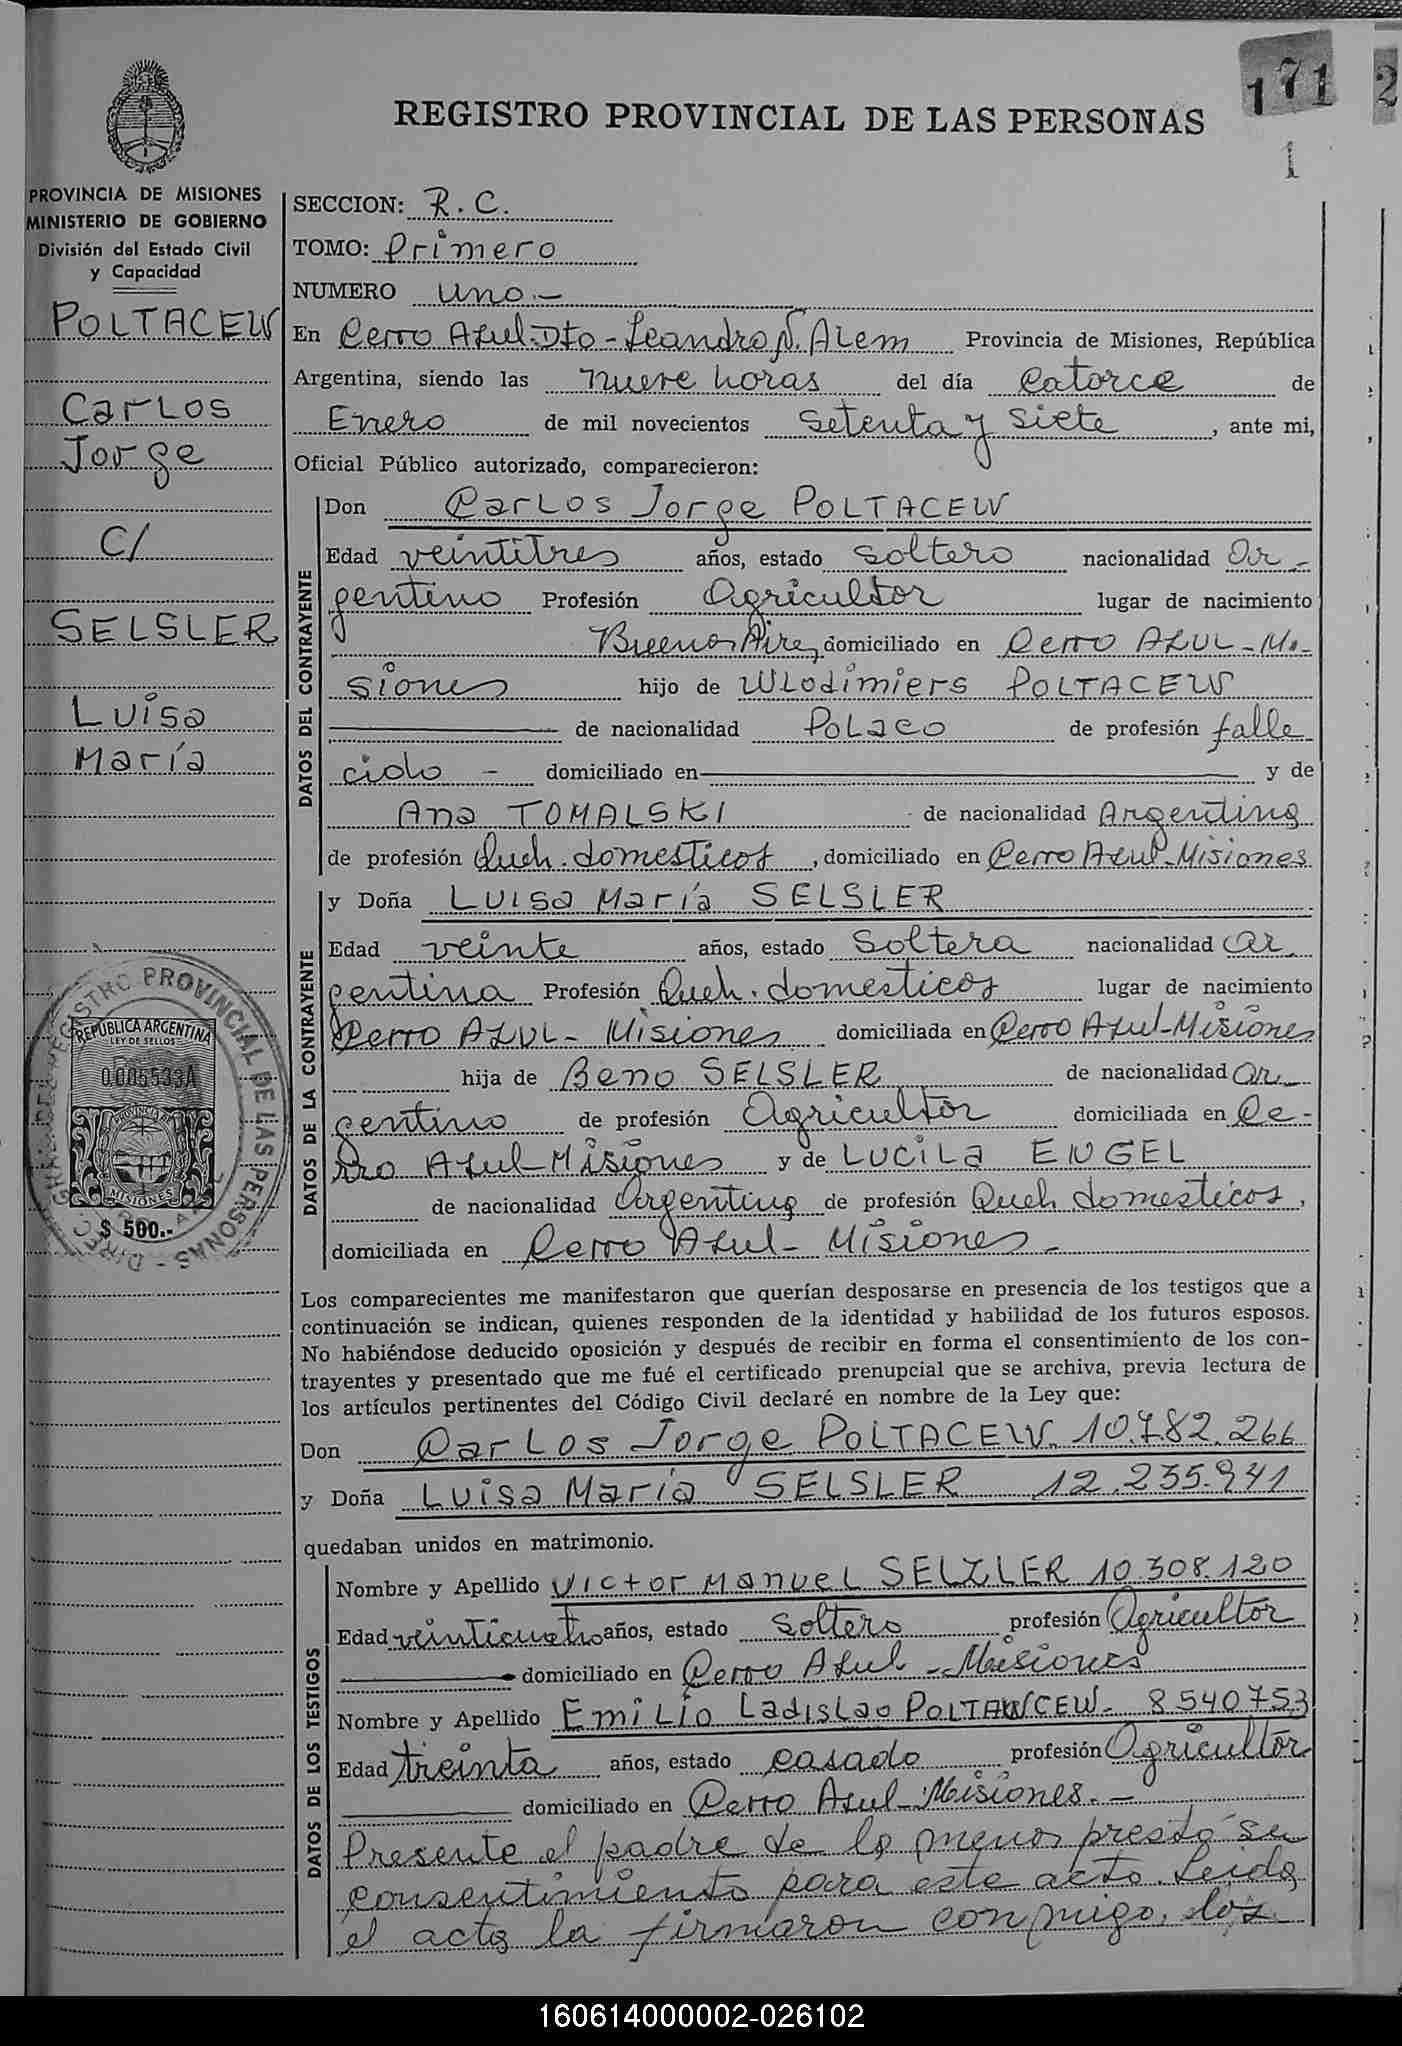 171
2
REGISTRO PROVINCIAL DE LAS PERSONAS
1
PROVINCIA DE MISIONES
MINISTERIO DE GOBIERNO
División del Estado Civil
y Capacidad
POLTACEW
Carlos
Jorge
C/
SELSLER
Luisa
María
REGISTRO PROVINCIAL DE LAS PERSONAS
REPUBLICA ARGENTINA
LEY DE SELLOS
0005533A
MISIONES
$ 500.-
SECCION: R.C.
TOMO: Primero
NUMERO uno.-
En Cerro Azul-Dto-Leandro N. Alem Provincia de Misiones, República
Argentina, siendo las nueve horas del día Catorce de
Enero de mil novecientos setenta y siete, ante mi,
Oficial Público autorizado, comparecieron:
DATOS DEL CONTRAYENTE
Don Carlos Jorge POLTACEW
Edad veintitres años, estado soltero nacionalidad Ar-
gentino Profesión Agricultor lugar de nacimiento
Buenos Aires domiciliado en Cerro Azul-Mi-
siones hijo de Wlodimiers POLTACEW
de nacionalidad Polaco de profesión falle
cido - domiciliado en y de
Ana TOMALSKI de nacionalidad Argentina
de profesión Queh. domesticos, domiciliado en Cerro Azul-Misiones
DATOS DE LA CONTRAYENTE
y Doña Luisa María SELSLER
Edad veinte años, estado Soltera nacionalidad ar
gentina Profesión Queh. domesticos lugar de nacimiento
Cerro Azul- Misiones domiciliada en Cerro Azul-Misiones
hija de Beno SELSLER de nacionalidad ar
gentino de profesión Agricultor domiciliada en Ce-
rro Azul-Misiones y de Lucila ENGEL
de nacionalidad argentina de profesión Queh domesticos,
domiciliada en Cerro Azul- Misiones-
Los comparecientes me manifestaron que querían desposarse en presencia de los testigos que a
continuación se indican, quienes responden de la identidad y habilidad de los futuros esposos.
No habiéndose deducido oposición y después de recibir en forma el consentimiento de los con-
trayentes y presentado que me fué el certificado prenupcial que se archiva, previa lectura de
los artículos pertinentes del Código Civil declaré en nombre de la Ley que:
Don Carlos Jorge POLTACEW. 10.782.266
y Doña Luisa María SELSLER 12.235.941
quedaban unidos en matrimonio.
DATOS DE LOS TESTIGOS
Nombre y Apellido Victor Manuel SELZLER 10.308.120
Edad veinticuatro años, estado soltero profesión Agricultor
domiciliado en Cerro Azul-Misiones
Nombre y Apellido Emilio Ladislao POLTAWCEW- 8540753
Edad treinta años, estado casado profesión Agricultor
domiciliado en Cerro Azul-Misiones.-
Presente el padre de la menor prestó su
consentimiento para este acto. Leida
el acta la firmaron conmigo, los
160614000002-026102